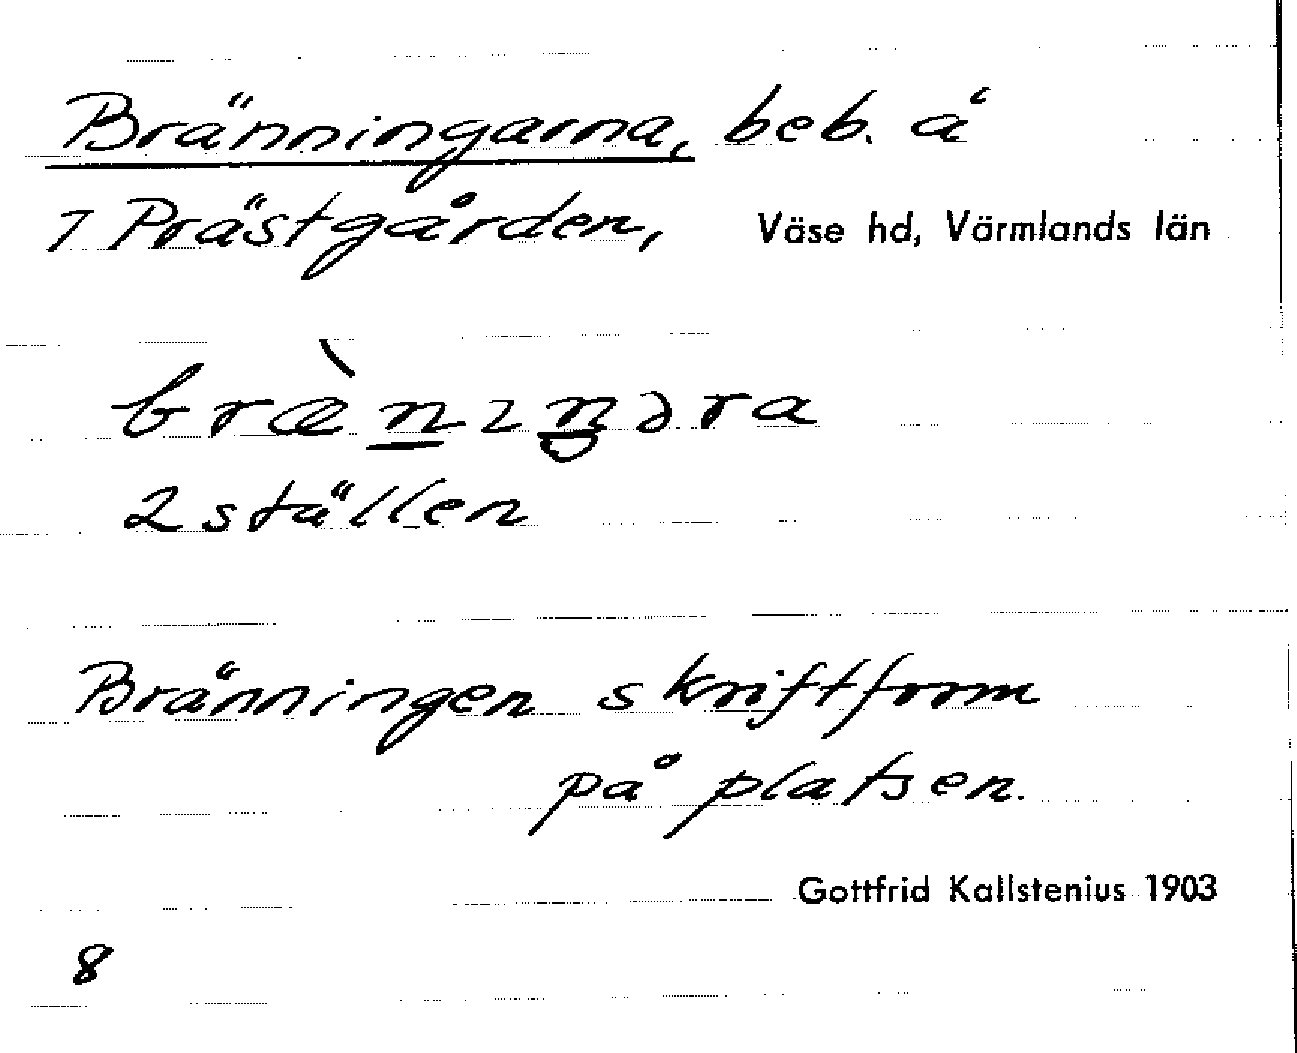 Bränningarna, beb. å
7 Prästgården, Väse hd, Värmlands län
2 ställen
Bränningen skriftform
på platsen.
Gottfrid Kallstenius 1903
8